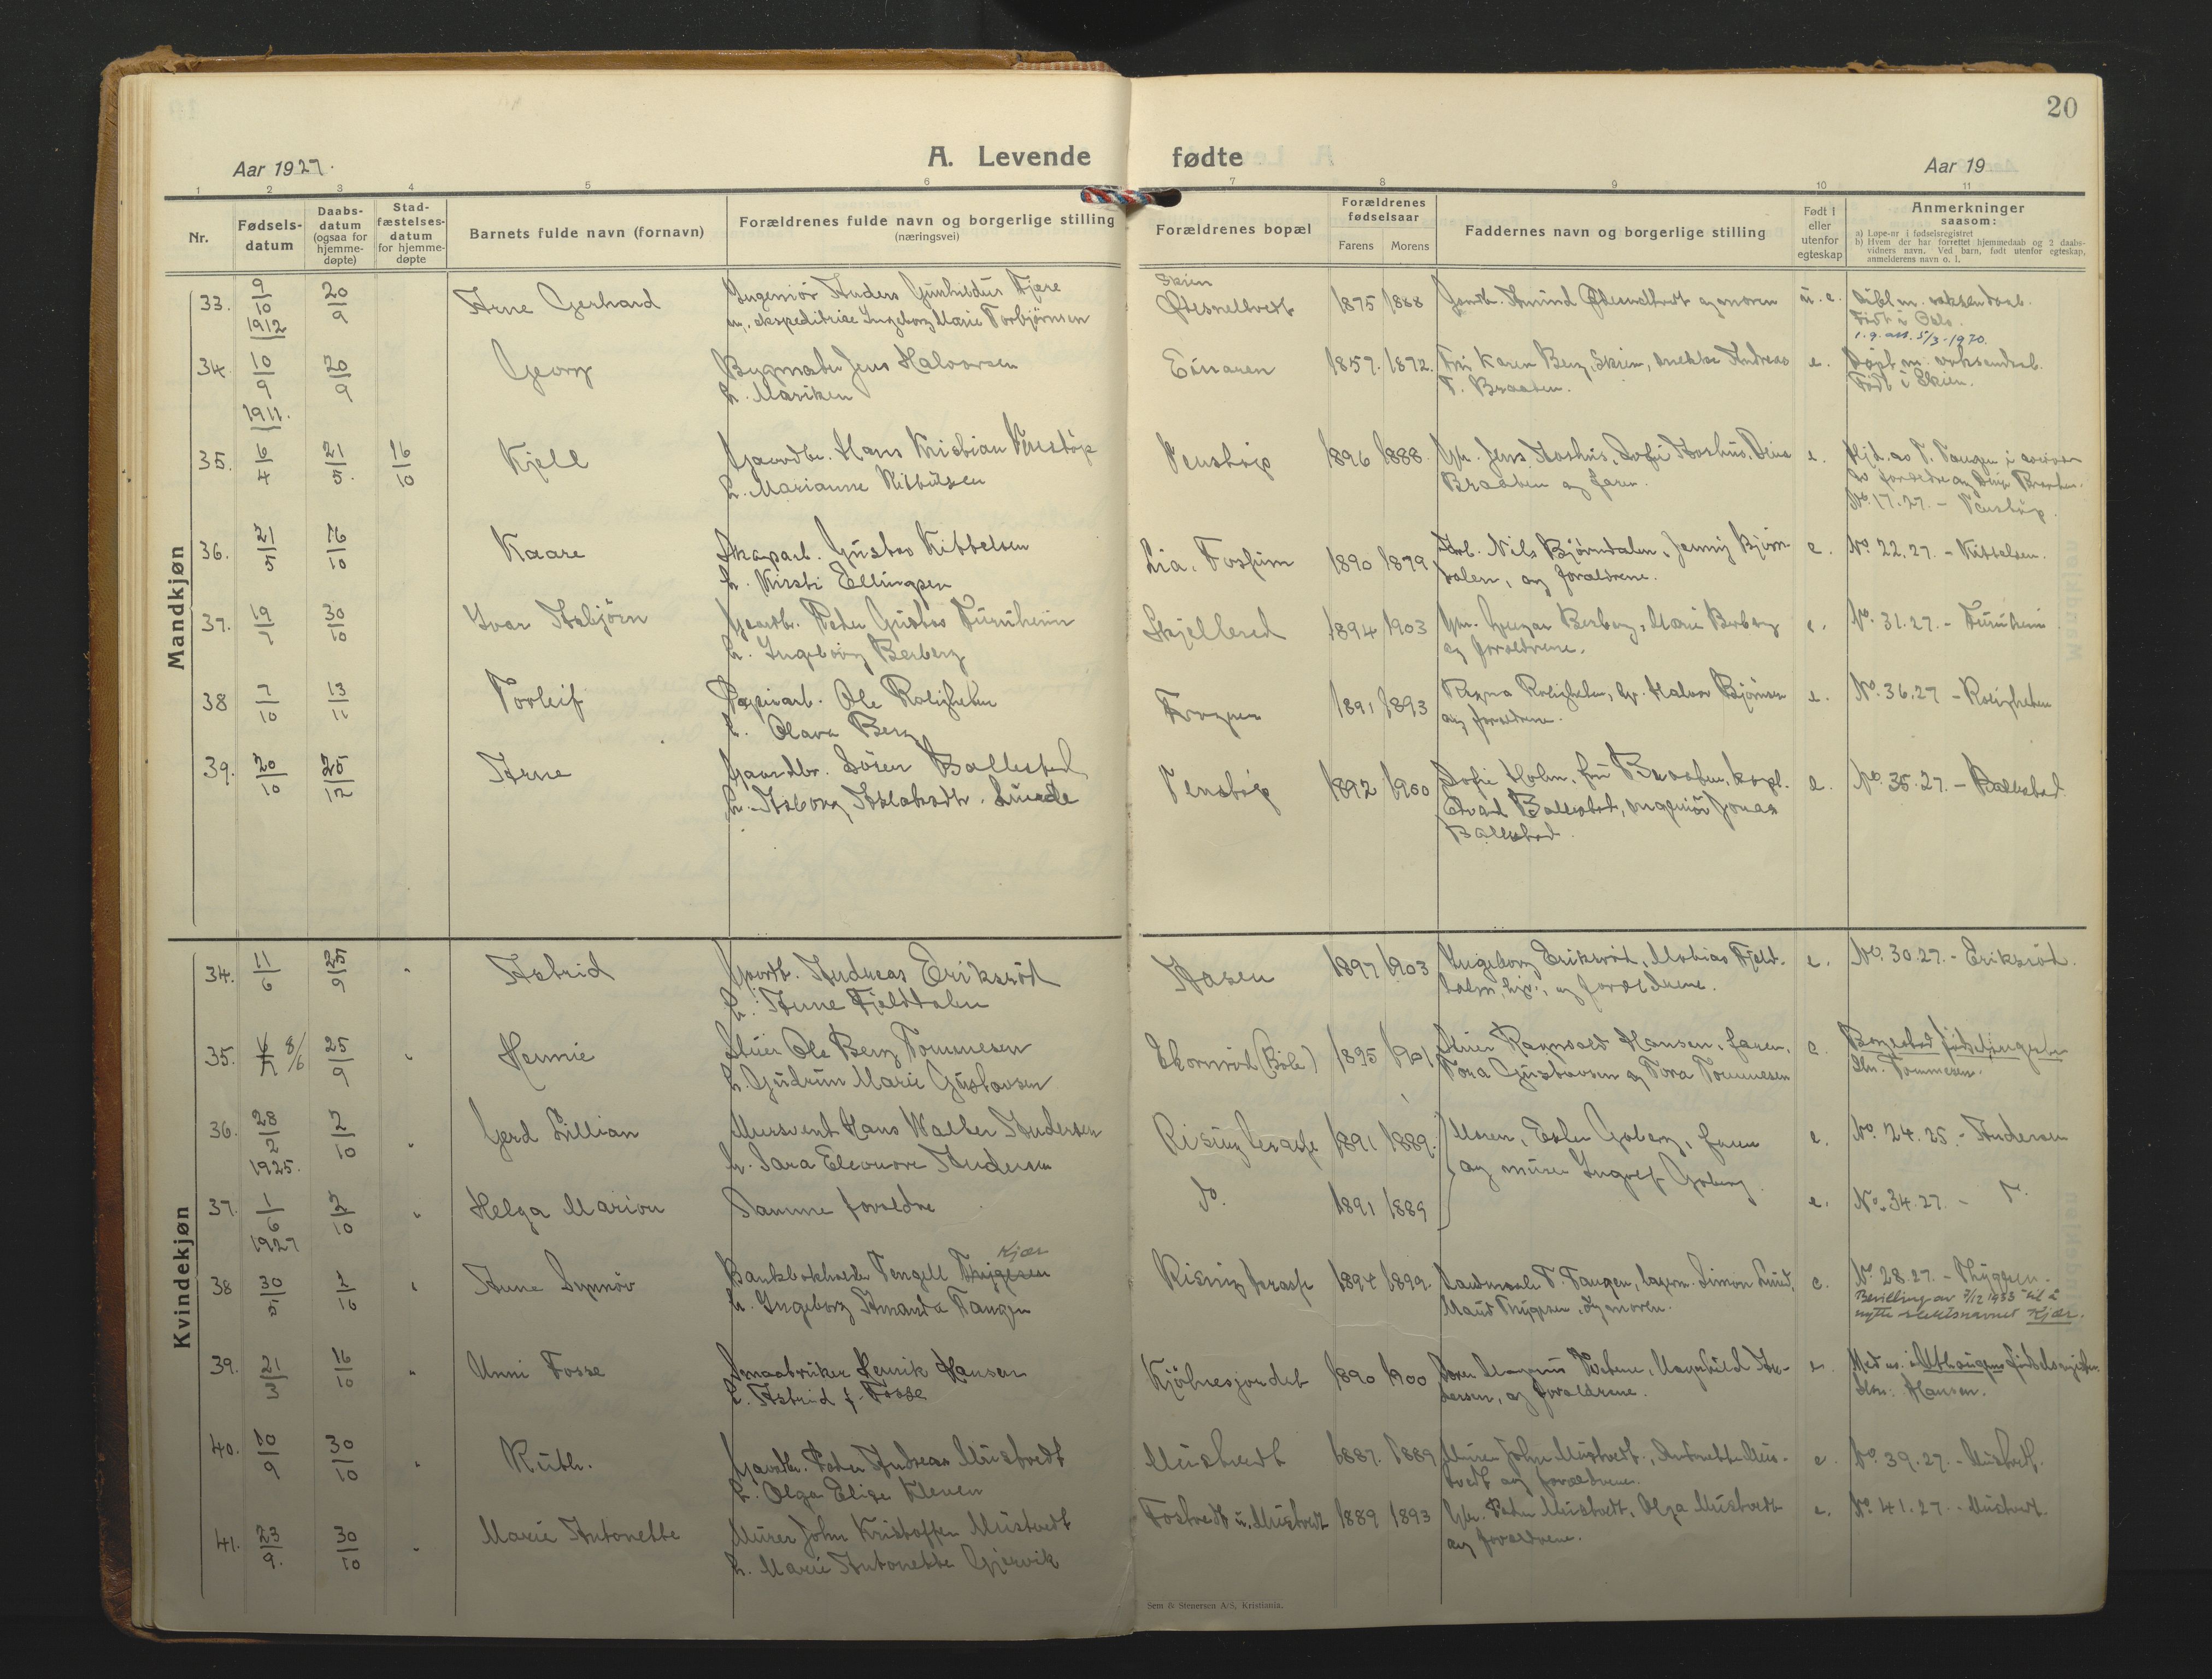 20
A. Levende fødte
Aar 1927.
Aar 19
1 2 3 4 5 6 7 8 9 10 11
Nr.
Fødsels-
datum
Daabs-
datum
(ogsaa for
hjemme-
døpte)
Stad-
fæstelses-
datum
for hjemme-
døpte
Barnets fulde navn (fornavn)
Forældrenes fulde navn og borgerlige stilling
(næringsvei)
Forældrenes bopæl
Forældrenes
fødselsaar
Farens Morens
Faddernes navn og borgerlige stilling
Født i
eller
utenfor
egteskap
Anmerkninger
saasom:
a) Løpe-nr i fødselsregistret
b) Hvem der har forrettet hjemmedaab og 2 daabs-
vidners navn. Ved barn, født utenfor egteskap,
anmelderens navn o. l.
Mandkjøn
33. 9/10 1912 20/9 Arne Gerhard
Ingeniör Anders Gunhildus Fjære
u., ekspeditrise Ingeborg Marie Torbjørnsen
Skien
1875 1888
Gaardbr. Amund og moren
u. e.
Döbt m. voksendaab.
Født i Oslo.
5/3-1970.
34. 10/9 1911. 20/9 Georg
Bygmester Jens Halvorsen
h. Mariken
Einaren 1857. 1872.
Fru Karen Berg, Skien, snekker Andreas
T. Braaten.
e.
Døpt m. voksendaab.
Født i Skien.
35. 6/4 21/5. 16/10 Kjell
Gaardbr. Hans Kristian Venstöp
h. Marianne Kittilsen
Venstöp 1896 1888.
Gbr. Jens Aashus, Sofie Aashus, Dina
Braaten og faren.
e.
Hjd. av T. Tangen i nærvær
av foreldre og Dina Braaten.
No. 17.27. - Venstöp.
36. 21/5 16/10 Kaare
Skogarb. Gustav Kittelsen
h. Kirsti Ellingsen
Lia, Fossum 1890 1879
Arb. Nils Bjørndalen, Jenny Bjørn-
dalen, og foreldrene.
e.
No 22.27. - Kittelsen.
37. 19/7 30/10 Ivar Asbjörn
Gaardbr. Peder Gustav Furuheim
h. Ingeborg Berberg
Skjellered 1894 1903
Gbr. Berberg, Marie Berberg
og foreldrene.
e.
No. 31.27. - Furuheim
38 7/10 13/11 Torleif
Papirarb. Ole Roligheten
h. Olava Berg
Frogner 1891 1893
Ragna Roligheten, gbr. Halvor Björnsen
og foreldrene.
e.
No. 36.27 - Roligheten
39. 20/10 25/12 Arne
Gaardbr. Sören Ballestad
h. Asborg Aslaksdtr. Lunde
Venstöp 1892 1900
Sofie Holm, fru Braaten, kapt.
Edvard Ballestad, ingeniör Jonas
Ballestad.
e.
No. 35.27. - Ballestad.
Kvindekjøn
34. 11/6 25/9 " Astrid
Gaardbr. Andreas Eriksröd
h. Anne Fjeldtalen
Aasen 1897 1903
Ingeborg Eriksröd, Mathias Fjeld-
talen, og foreldrene.
e.
No. 30.27. - Eriksröd.
35. 8/6 25/9 " Hennie
Stuer Ole Berg Tommesen
h. Gudrun Marie Gustavsen
Ekornröd (Böle) 1895 1901
Stuer Ragnvald Hansen, faren,
Tora Gustavsen og Tora Tommesen
e.
Borgestad fødselsregister
Sln. Tommesen.
36. 28/2 1925. 2/10 " Gerd Lillian
Mursvent Hans Walter Andersen
h. Sara Eleonore Andersen
Rising terasse 1891 1889.
Moren, Ester Goberg, faren
og murer Ingolf Goberg
e.
No. 24.25. - Andersen
37. 1/6 1927 2/10 " Helga Marion
Samme foreldre
Do. 1891 1889
e.
No. 34.27. -
38 30/5 2/10 " Anne Synnöv
Bankbokholder Vengell Thygesen Kjær
h. Ingeborg Amanda Tangen
Rising terasse 1894 1899.
T. Tangen, Simon Lund,
Maud Thygesen, og moren.
e.
No. 28.27. - Thygesen.
Bevilling av 7/12 1933 til å
nytte slektsnavnet Kjær.
39. 21/3 16/10 " Unni Fosse
Smaabruker Henrik Hansen
h. Astrid f. Fosse
Kjölnesjordet 1890 1900
Magnhild An-
dersen, og foreldrene.
e.
Sln: Hansen.
40. 10/9 30/10 " Ruth.
Gaardbr. Peder Andreas Mustvedt
h. Olga Elise Kleven
Mustvedt 1887. 1889
Murer John Mustvedt, Antonette Mus-
tvedt og foreldrene.
e.
No. 39.27. - Mustvedt.
41. 23/9. 30/10 " Marie Antonette
Murer John Kristoffer Mustvedt
h. Marie Antonette Gjervik
Fostvedt u. Mustvedt 1889 1893
Gbr. Peder Mustvedt, Olga Mustvedt
og foreldrene.
e.
No. 41.27. - Mustvedt.
Sem & Stenersen A/S, Kristiania.